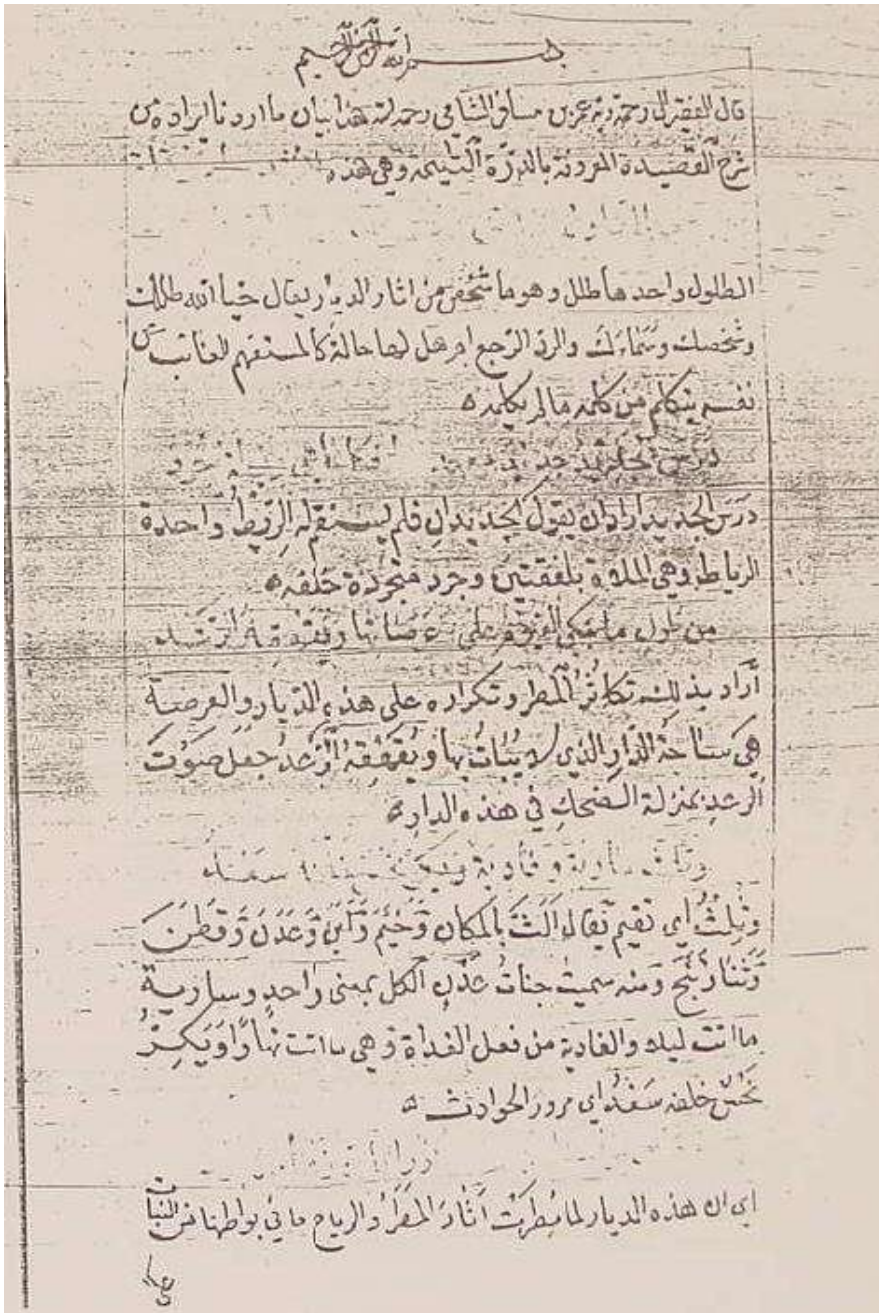 بسم الله الرحمن الرحيم
قال الفقير الى رحمة ربه عمر بن مسافر الشامي رحمه الله هذا بيان ما اردنا ايراده من
شرح القصيدة المعروفة بالدرّة اليتيمة وهي هذه
الطلول واحدها طلل وهو ما شخص من اثار الديار يقال حيا الله طللك
وشخصك وسماءك والرد الرجع ام هل لها حالة كالمستفهم للغائب من
نفسه يتكلم من كلمه ما لم يكلمه
درس الجديد جديد
درس الجديد اراد ان يقول الجديدان فلم يستقم له الريط واحدة
الرياط وهي الملاة بلفقتين وجرد منجردة خلقه
من طول ما يبكي الغيوم على عرصاتها ويقهقه الرعد
أراد بذلك تكاثر المطر وتكراره على هذه الديار والعرصة
هي ساحة الدار الذي لا يبات بها ويقهقه الرعد جعل صوت
الرعد بمنزلة الضحك في هذه الدار
وتلث سارية وغادية ويكر نحس خلفه سعد
وتلث اي تقيم يقال الث بالمكان وخيم وابن وعدن وقطن
وتنا ومنه سميت جنات عدن الكل بمعنى واحد وسارية
ما اتت ليلا والغادية من فعل الغداة وهي ما اتت نهارا ويكر
نحس خلفه سعد اي مرور الحوادث
اي ان هذه الديار لما مطرت أثار المطر والرياح ما في بواطنها من النبات